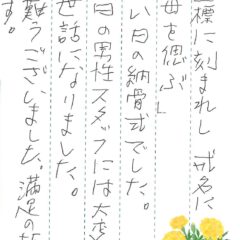 標に刻まれし 戒名に
母を偲ぶ」
い日の納骨式でした。
日の男性スタッフには大変
世話になりました。
難うございました。満足の
す。